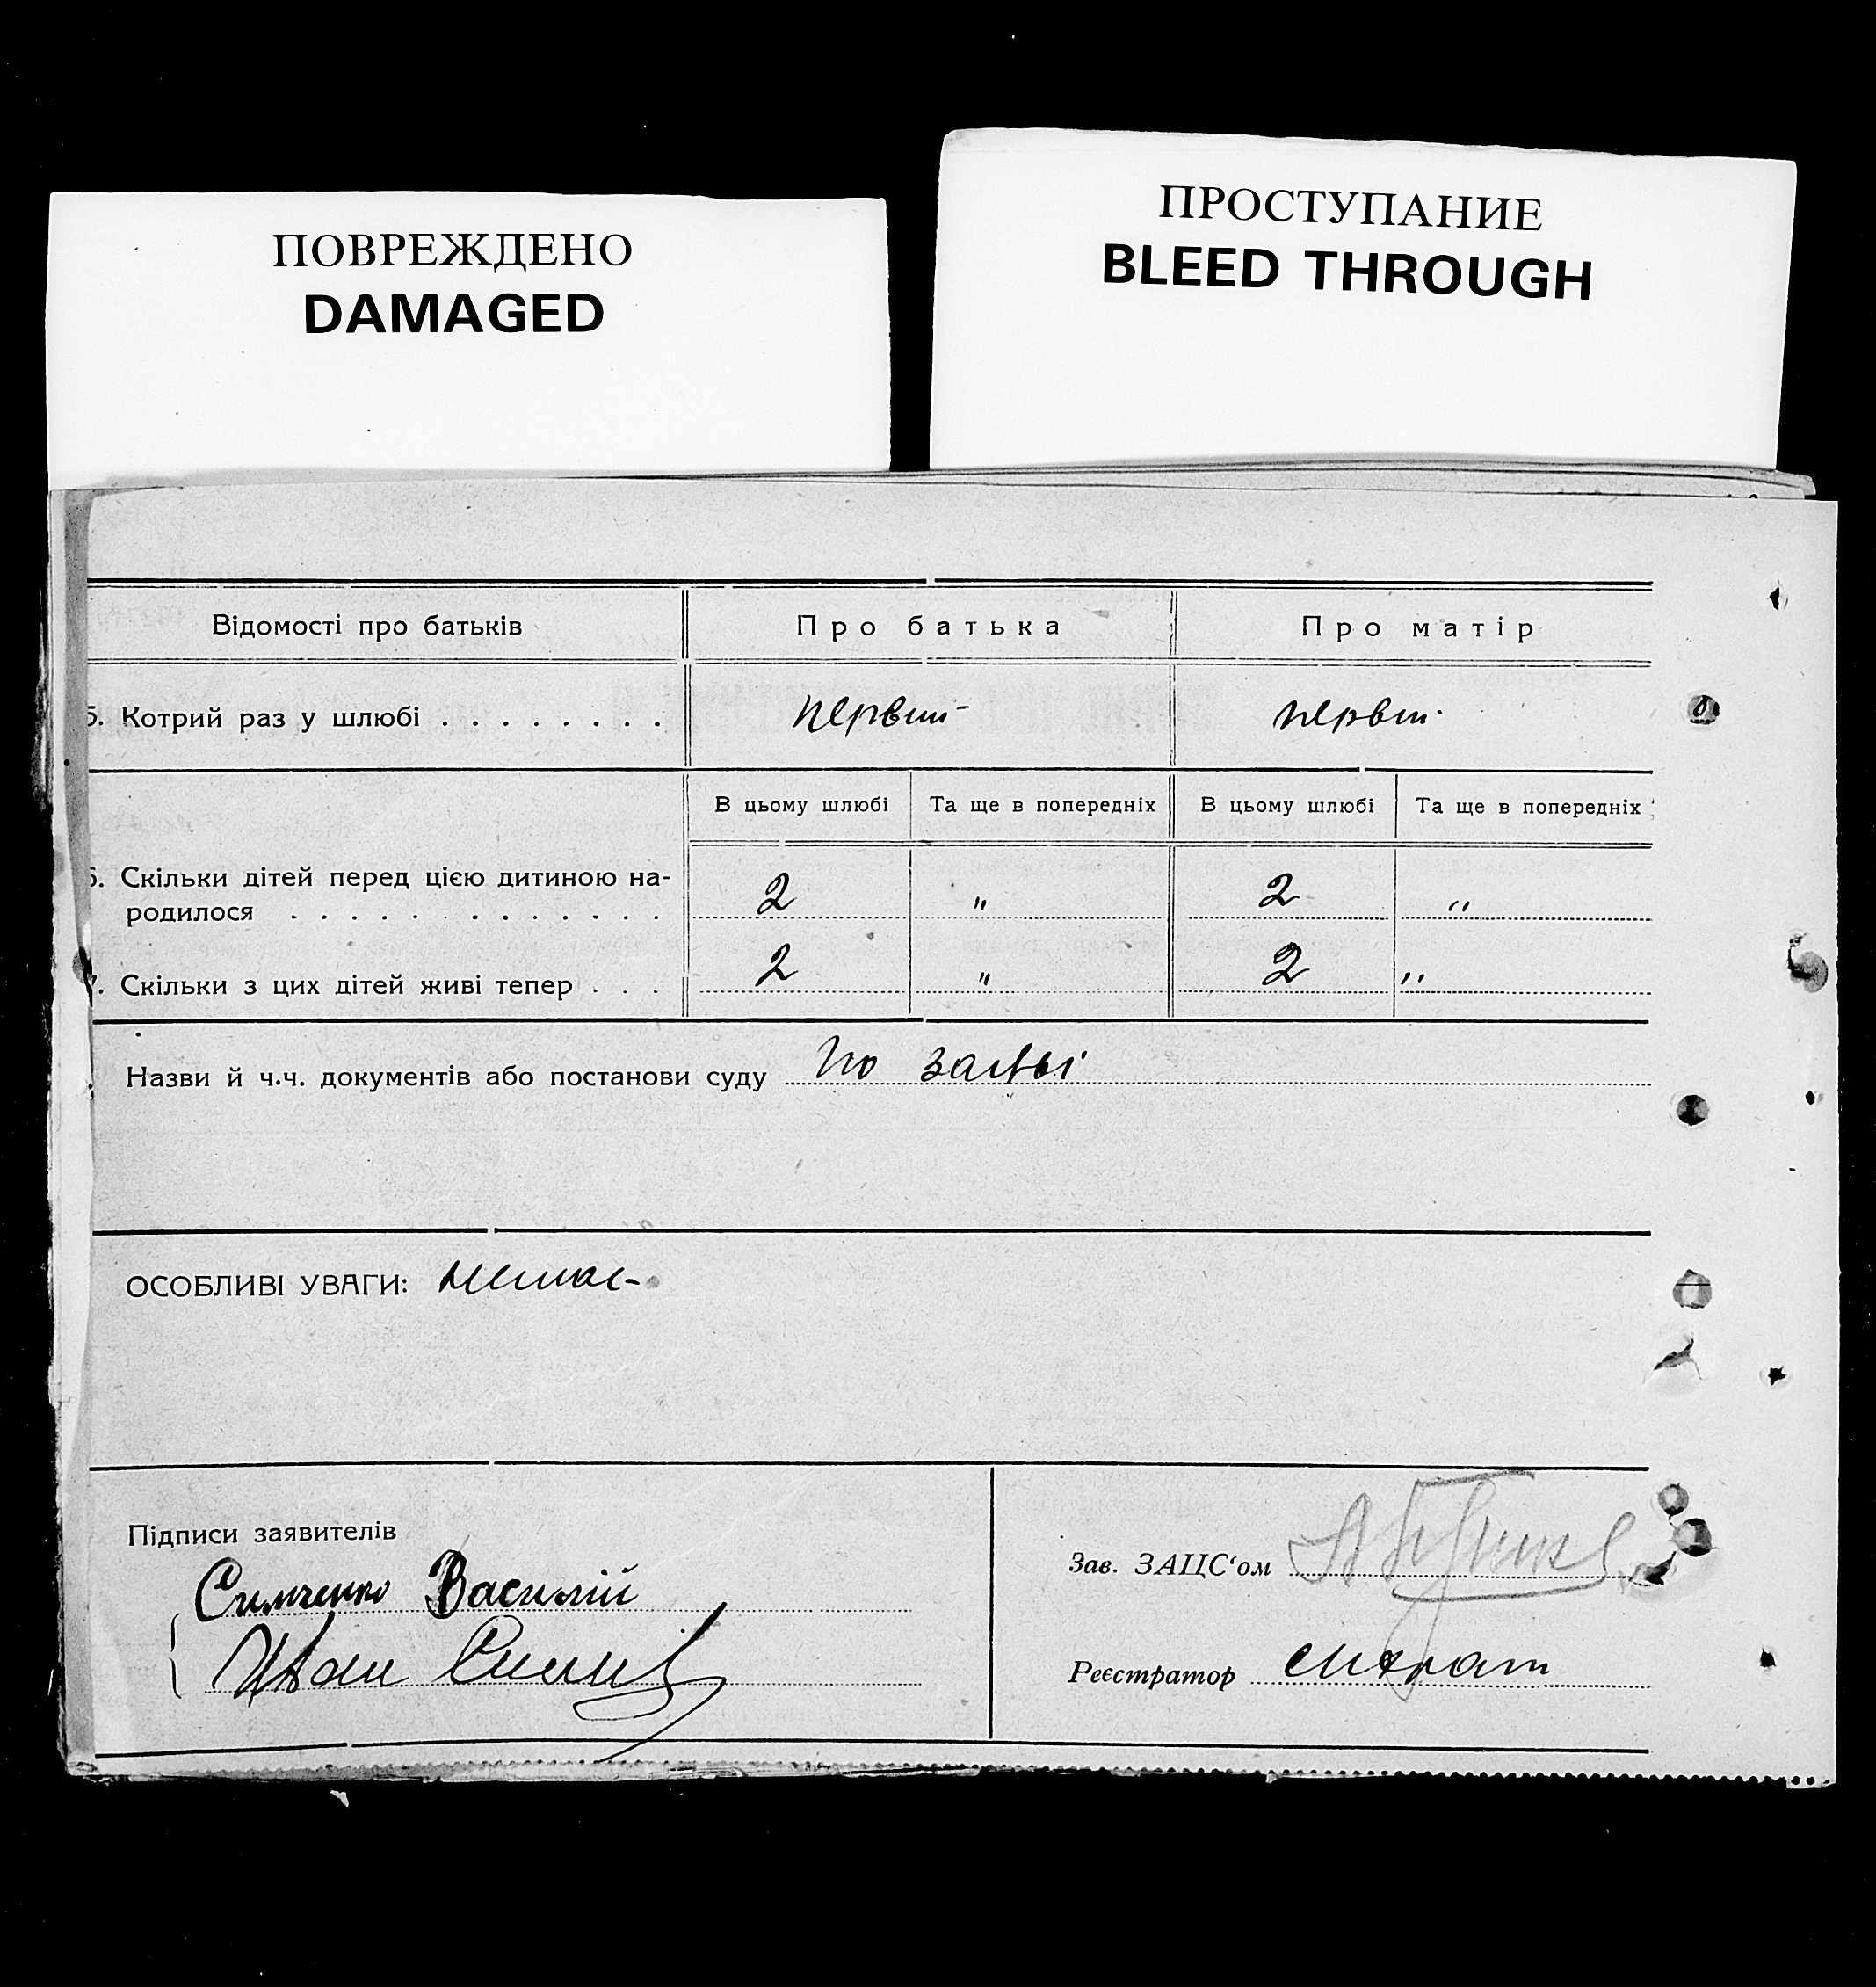 ПОВРЕЖДЕНО
DAMAGED
ПРОСТУПАНИЕ
BLEED THROUGH
Відомості про батьків
Про батька
Про матір
5. Котрий раз у шлюбі . . . . . . . .
первий
первий
В цьому шлюбі
Та ще в попередніх
В цьому шлюбі
Та ще в попередніх
6. Скільки дітей перед цією дитиною на-
родилося . . . . . . . . . . . . .
2
"
2
"
7. Скільки з цих дітей живі тепер . . .
2
"
2
"
Назви й ч.ч. документів або постанови суду По заяві
ОСОБЛИВІ УВАГИ: немає
Підписи заявителів
Василій
Иван
Зав. ЗАЦС‘ом
Реєстратор